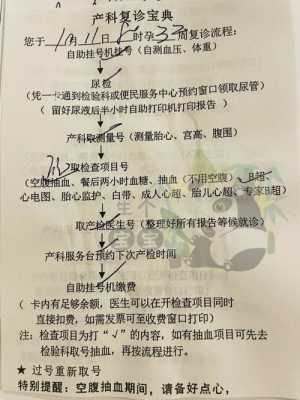 产科复诊宝典
您于1月11日8时孕33周复诊流程：
自助挂号机挂号（自测血压、体重）
尿检
（凭一卡通到检验科或便民服务中心预约窗口领取尿管）
（留好尿液后半小时自助打印机打印报告）
产科取测量号（测量胎心、宫高、腹围）
取检查项目号
（空腹抽血、餐后两小时血糖、抽血（不用空腹）、B超、
心电图、胎心监护、白带、成人心超、胎儿心超、专家B超）
取产检医生号（整理好所有报告等候就诊）
产科服务台预约下次产检时间
自助挂号机缴费
（卡内有足够余额，医生可以在开检查项目同时
直接扣费，如需发票可至收费窗口打印）
注：检查项目为打“√”的内容，如有抽血项目可先去
检验科取号抽血，再按流程进行。
★ 过号重新取号
特别提醒：空腹抽血期间，请备好点心，